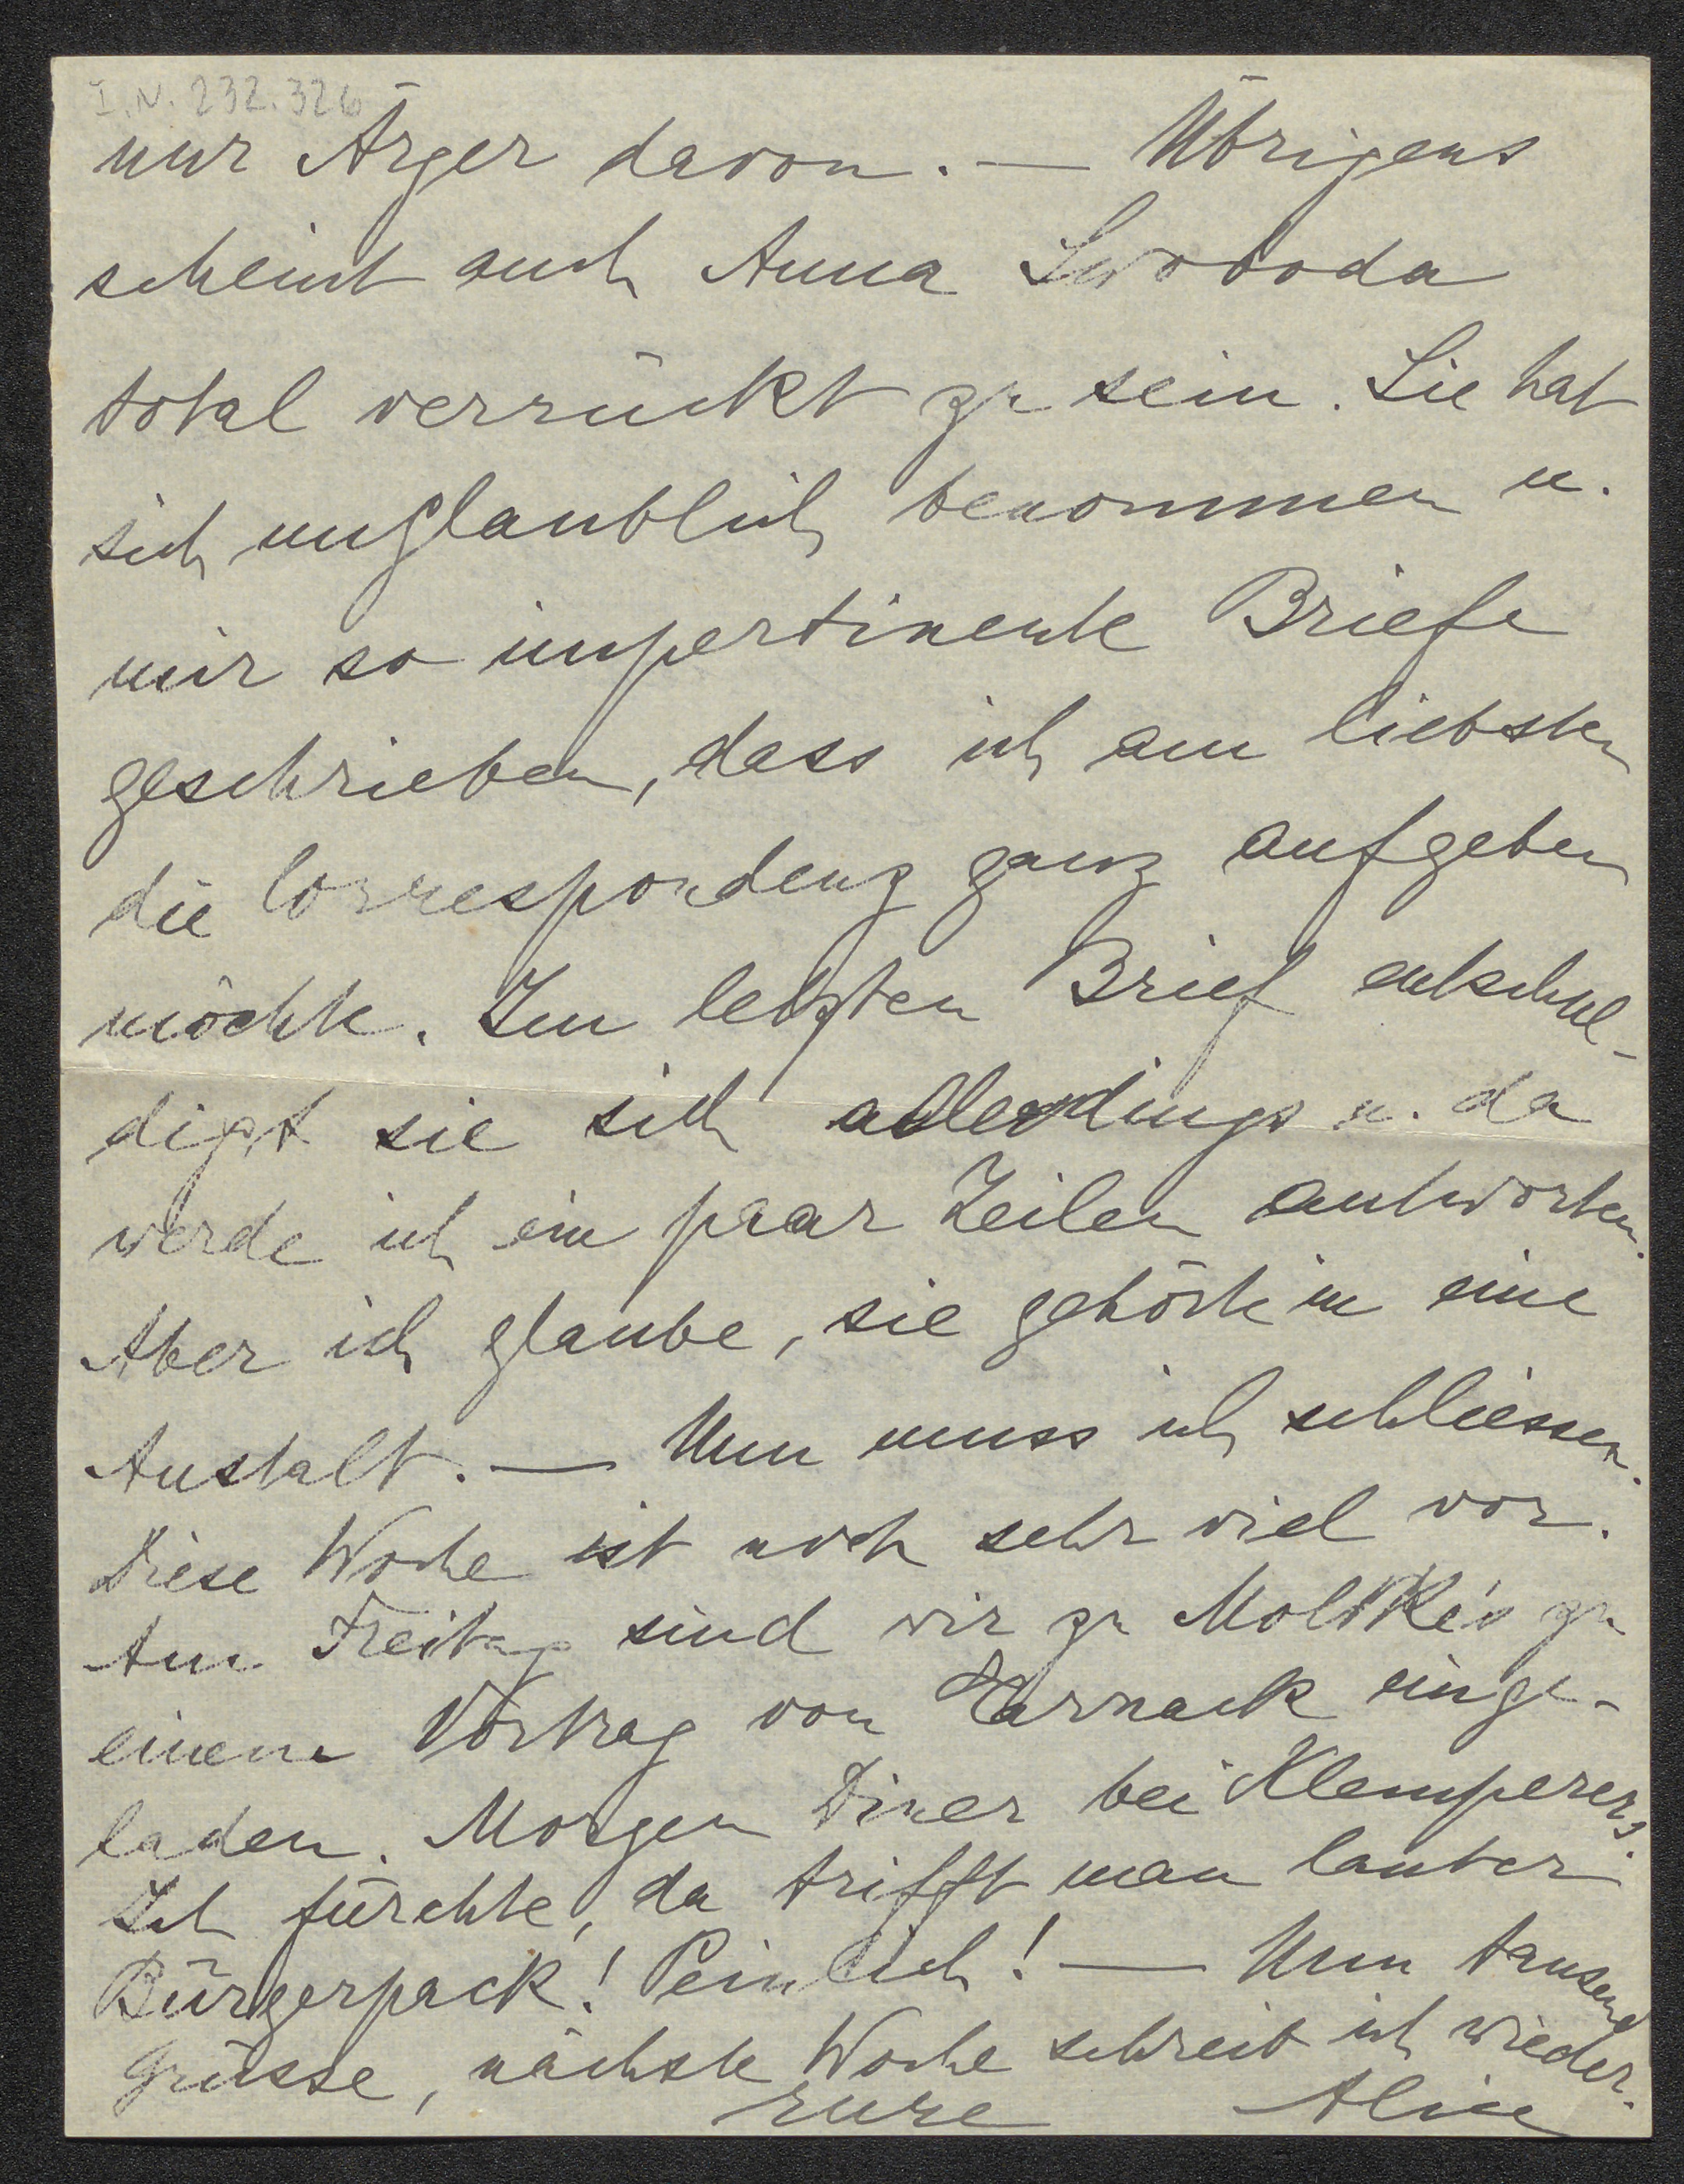 I.N. 232.326
nur Ärger davon. — Übrigens
scheint auch Anna Swoboda
total verrückt zu sein. Sie hat
sich unglaublich benommen u.
mir so impertinente Briefe
geschrieben, dass ich am liebsten
die Correspondenz ganz aufgeben
möchte. Im letzten Brief entschul-
digt sie sich allerdings u. da
werde ich ein paar Zeilen antworten.
Aber ich glaube, sie gehörte in eine
Anstalt. — Nun muss ich schliessen.
Diese Woche ist noch sehr viel vor.
Am Freitag sind wir zu Moltke's zu
einem Vortrag von Harnack einge-
laden. Morgen Diner bei Klemperers.
Ich fürchte, da trifft man lauter
Bürgerpack! Peinlich! — Nun tausend
Grüsse, nächste Woche schreib ich wieder.
Eure Alin